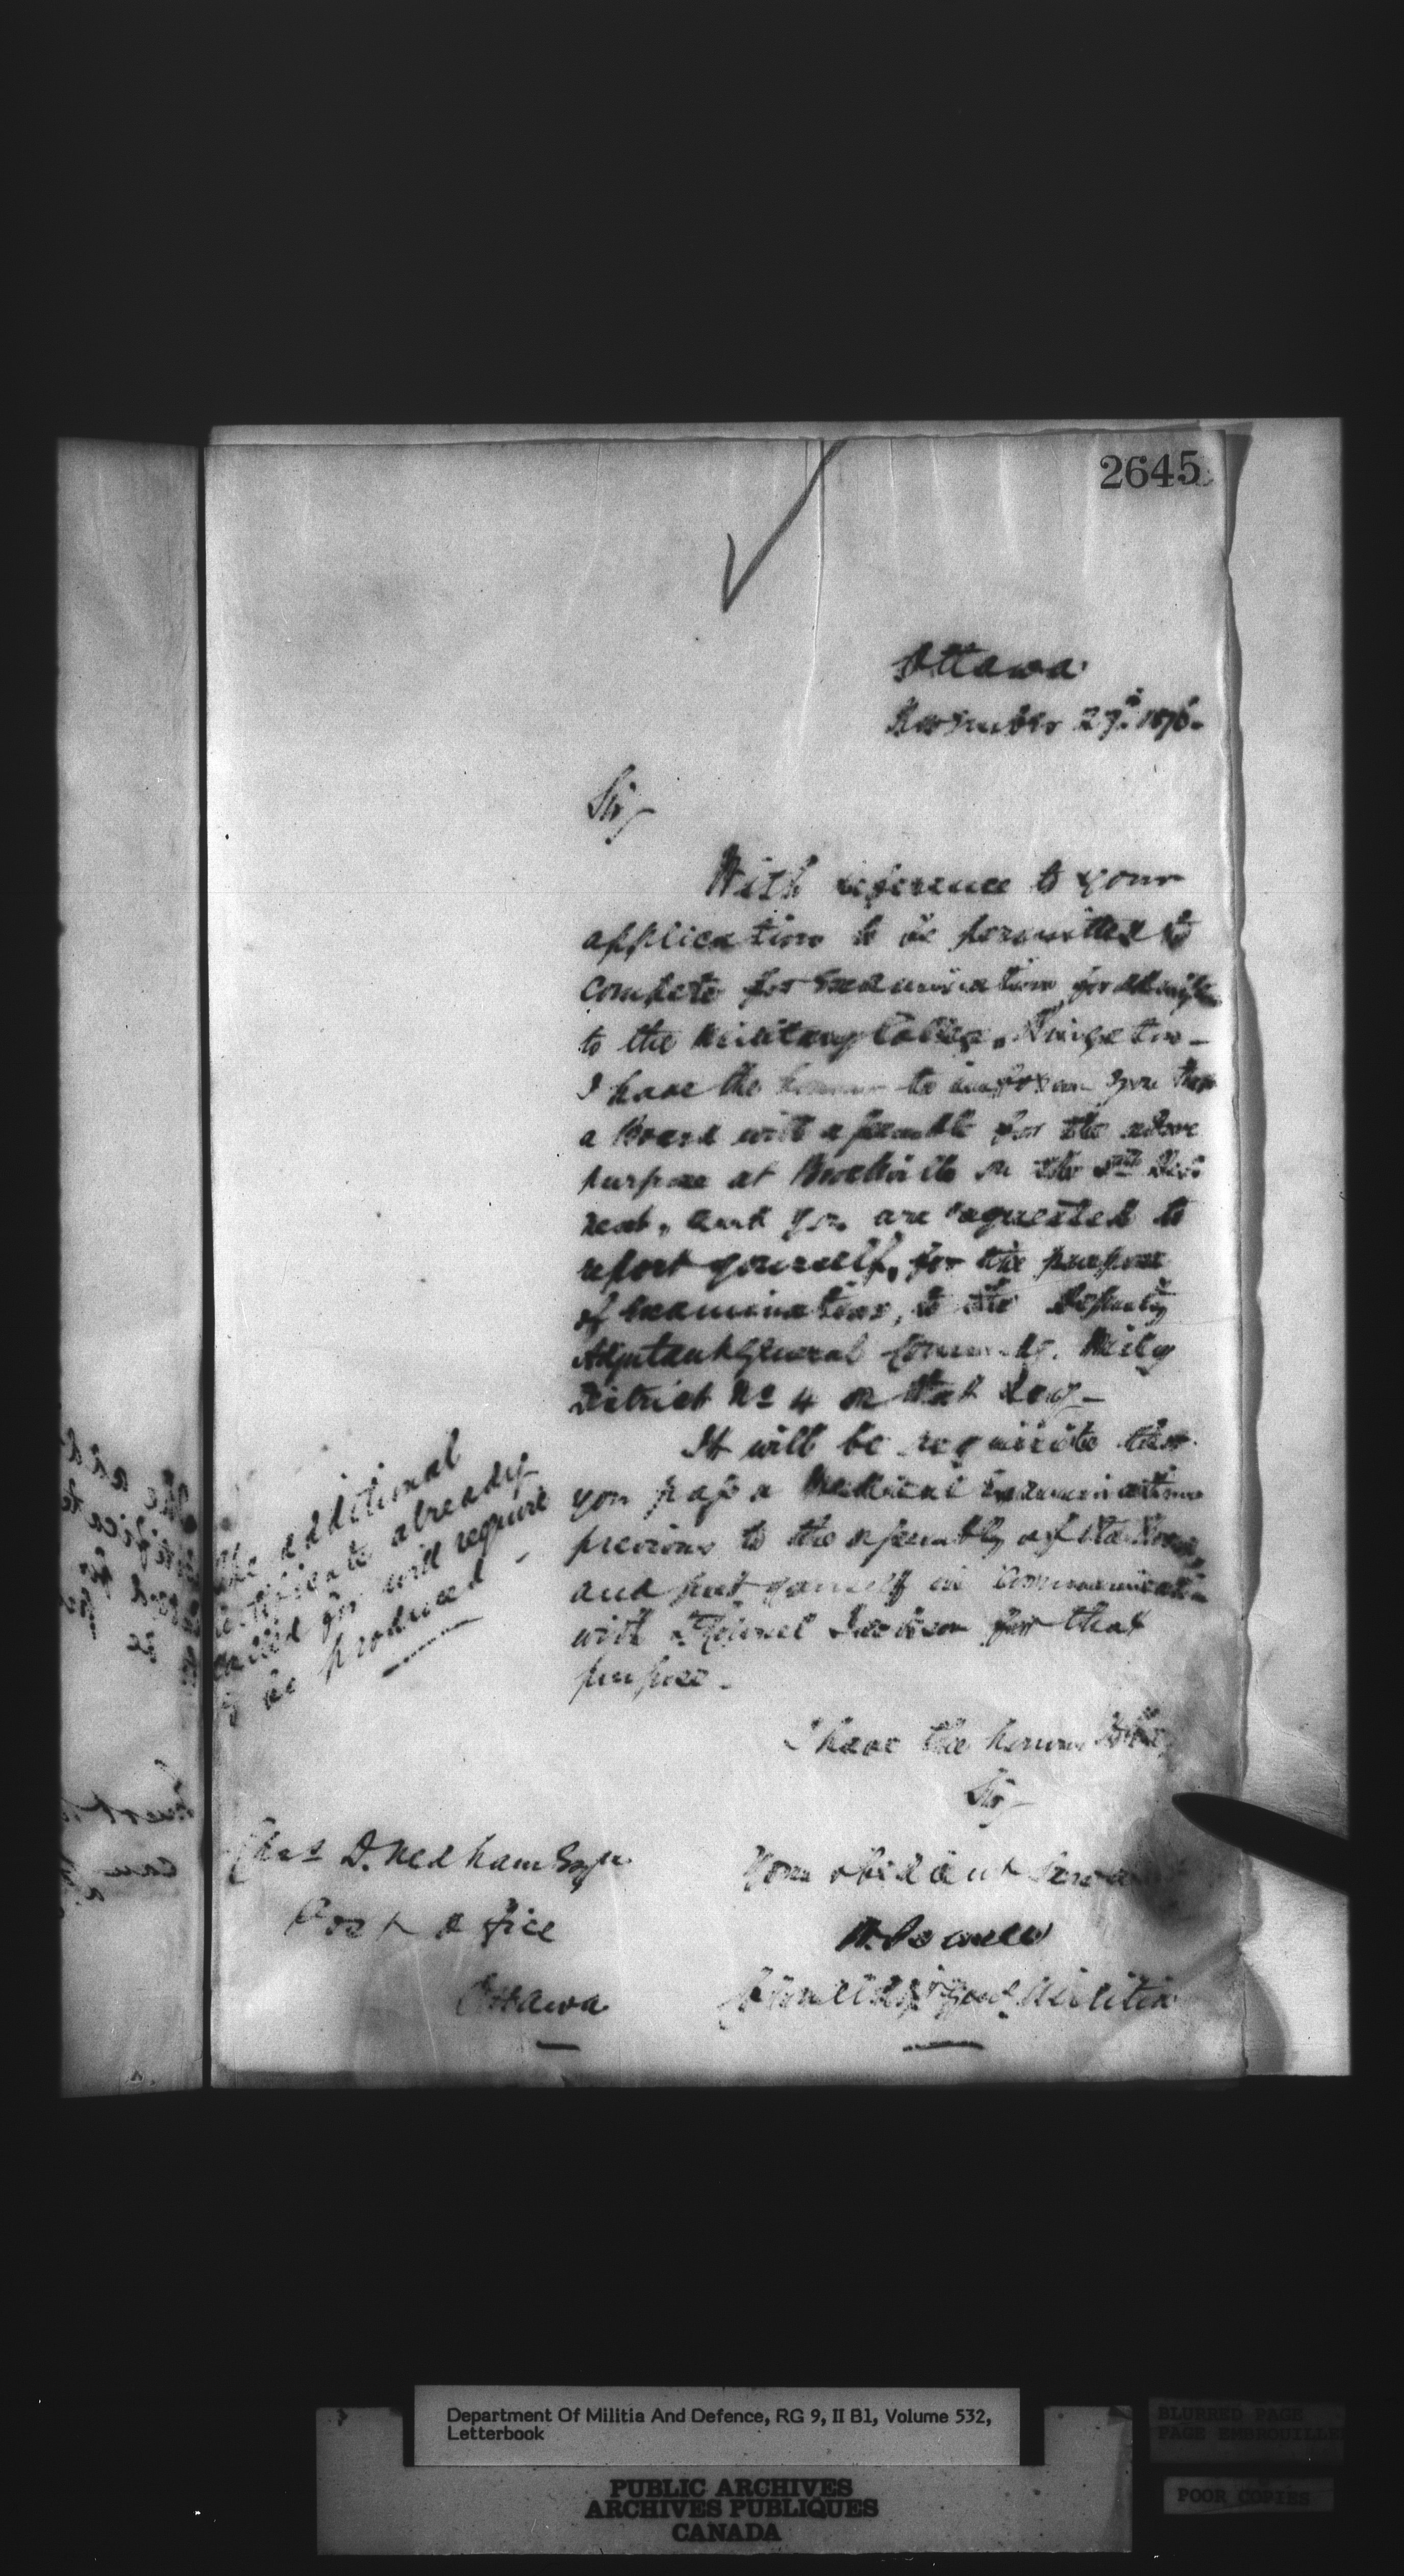 2645
Ottawa
November 27th 1876.
Sir,
With reference to your
application to be permitted to
compete for Examination for
to the Military College, Kingston -
I have the honour to inform you that
a Board will assemble for the above
purpose at Brockville on the 5th Decr
next, and you are requested to
report yourself, for the purpose
of examination, to the Deputy
Adjutant General Commdg. Mily
District No 4 on that day -
It will be requisite that
you pass a Medical Examination
previous to the assembly of the Board,
and put yourself in communication
with Colonel Jackson for that
purpose -
The additional
certificate already
called for will require
to be produced -
I have the honour to be,
Sir,
Your obedient Servant
W. Powell
Colonel Adjt Genl Militia
Chas D. Nedham Esqre
Post Office
Ottawa
Department Of Militia And Defence, RG 9, II B1, Volume 532,
Letterbook
PUBLIC ARCHIVES
ARCHIVES PUBLIQUES
CANADA
BLURRED PAGE
PAGE EMBROUILLEE
POOR COPIES